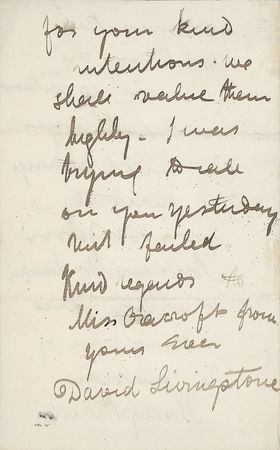 for your kind
intentions. we
shall value them
highly - I was
trying to call
on you yesterday
but failed
Kind regards to
Miss Cracroft from
yours ever
David Livingstone